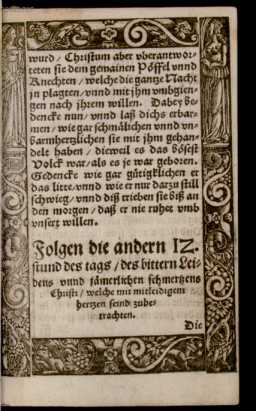 wurd / Christum aber vberantwor-
teten sie dem gemainen Pöffel vnnd
Knechten / welche die gantze Nacht
in plagten / vnnd mit jhm vmbgien-
gen nach jhrem willen. Dabey be-
dencke nun / vnnd laß dichs erbar-
men / wie gar schmählichen vnnd vn-
barmhertzlichen sie mit jhm gehan-
delt haben / dieweil es das bösest
Volck war / als es je war geboren.
Gedencke wie gar gütigklichen er
das litte / vnnd wie er nur darzu still
schwieg / vnnd diß trieben sie biß an
den morgen / daß er nie ruhet vmb
vnsert willen.
Folgen die andern 12.
stund des tags / des bittern Lei-
dens vnnd jämerlichen schmertzens
Christi / welche mit mitleidigem
hertzen seind zube-
trachten.
Die